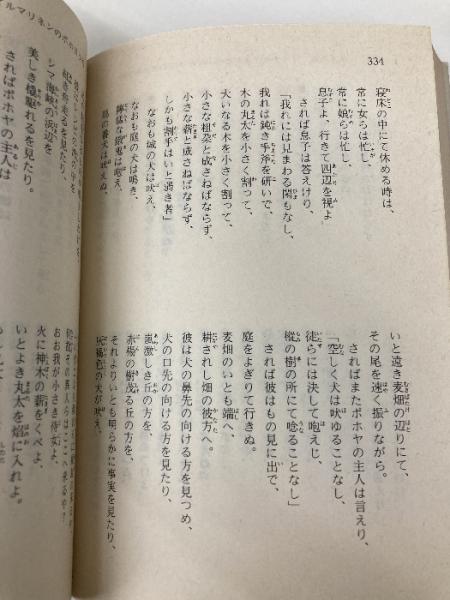 334
寝床の中にて休める時は、
常に女らは忙し、
常に娘らは忙し、
息子よ、行きて四辺を視よ」
されば息子は答えけり、
「我れには見まわる閑もなし、
我れは鈍き手斧を研いで、
大いなる木を小さく割って、
木の丸太を小さく割って、
小さな粗朶と成さねばならず、
小さな薪と成さねばならず、
しかも割手はいと弱き者」
なおも城の犬は吠え、
なおも庭の犬は鳴き、
獰猛な は吠え、
島の番犬は吠えぬ、
いと遠き麦畑の辺りにて、
その尾を速く振りながら。
さればまたポホヤの主人は言えり、
「空しく犬は吠ゆることなし、
徒らには決して咆えじ、
樅の樹の所にて唸ることなし」
されば彼はもの見に出で、
庭をよぎりて行きぬ。
麦畑のいとも端へ、
耕されし畑の彼方へ。
彼は犬の鼻先の向ける方を見つめ、
犬の口先の向ける方を見たり、
嵐激しき丘の方を、
赤楊の樹茂る丘の方を、
それよりいとも明らかに事実を見たり、
灰褐色の犬が吠え、
ルマリネンのポホ
見たり、
シマ海峡の浜辺を
美しき橇駆れるを見たり。
さればポホヤの主人は
おお我が小さき侍女よ、
火に神木の薪をくべよ、
いとよき丸太を焔に入れよ。